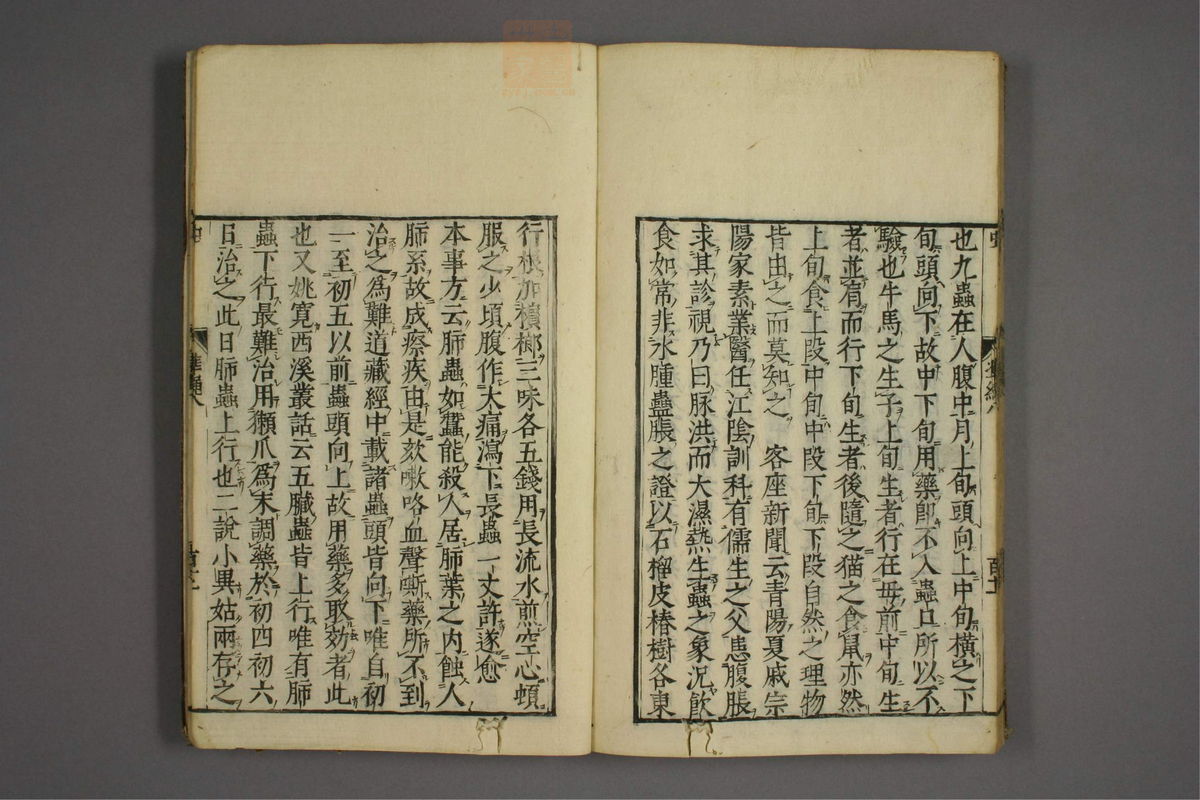 也九蟲在人腹中月上旬頭向上中旬橫之下
旬頭向下故中下旬用藥即不入蟲口所以不
驗也牛馬之生子上旬生者行在母前中旬生
者並肩而行下旬生者後隨之猫之食鼠亦然
上旬食上段中旬中段下旬下段自然之理物
皆由之而莫知之 客座新聞云青陽夏戚宗
陽家素業醫任江陰訓科有儒生之父患腹脹
求其診視乃曰脉洪而大濕熱生蟲之象況飲
食如常非水腫蠱脹之證以石榴皮椿樹各東
行根加檳榔三味各五錢用長流水煎空心頓
服之少頃腹作大痛瀉下長蟲一丈許遂愈
本事方云肺蟲如蠶能殺人居肺葉之內蝕人
肺系故成瘵疾由是欬嗽咯血聲嘶藥所不到
治之爲難道藏經中載諸蟲頭皆向下唯自初
一至初五以前蟲頭向上故用藥多取効者此
也又姚寬西溪叢話云五臟蟲皆上行唯有肺
蟲下行最難治用獺爪爲末調藥於初四初六
日治之此日肺蟲上行也二說小異姑兩存之